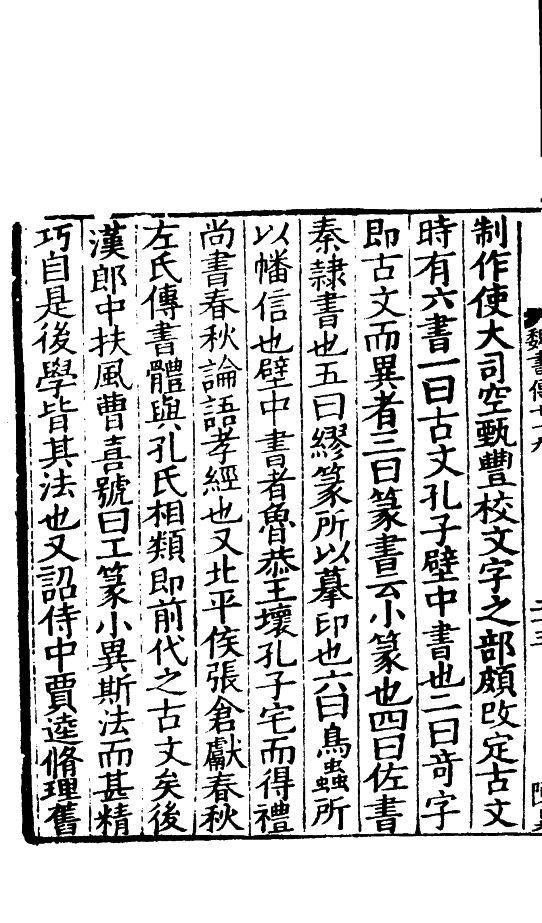 魏書傳七十九
制作使大司空甄豐校文字之部頗改定古文
時有六書一曰古文孔子壁中書也二曰竒字
即古文而異者三曰篆書云小篆也四曰佐書
秦隷書也五曰繆篆所以摹印也六曰鳥蟲所
以幡信也壁中書者魯恭王壞孔子宅而得禮
尚書春秋論語孝經也又北平侯張倉獻春秋
左氏傳書體與孔氏相類即前代之古文矣後
漢郎中扶風曹喜號曰工篆小異斯法而甚精
巧自是後學皆其法也又詔侍中賈逵脩理舊